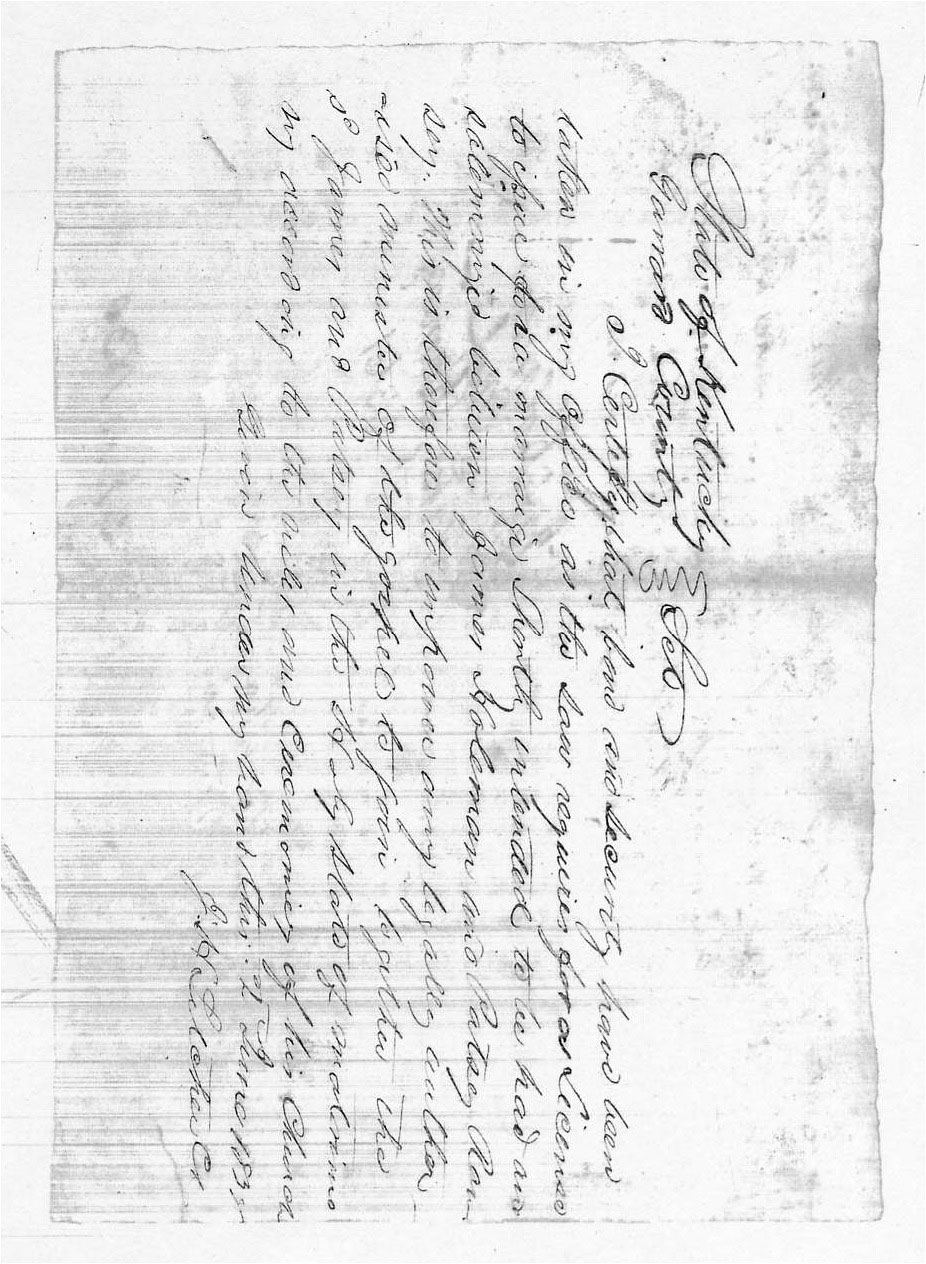 State of Kentucky
Garrard County Sct
I Certify that bond and security have been
taken in my office as the law requires for a License
to issue for a marriage Shortly intended to be had and
solemnized between James Holeman and Patsey Ram
sey. This is therefore to impower any legally author
ised minister of the gospel to join together the
sd James and Patsey in the Holy state of matrimo
ny according to the rites and Ceremonies of his Church
Given under my hand this 2d June 183
J. H. Letcher Ck